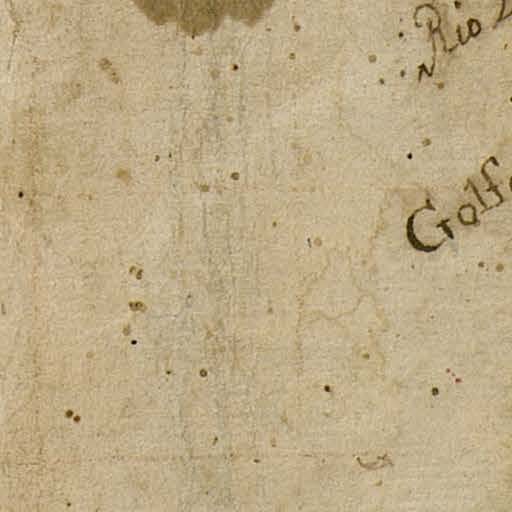 Rio
Golf